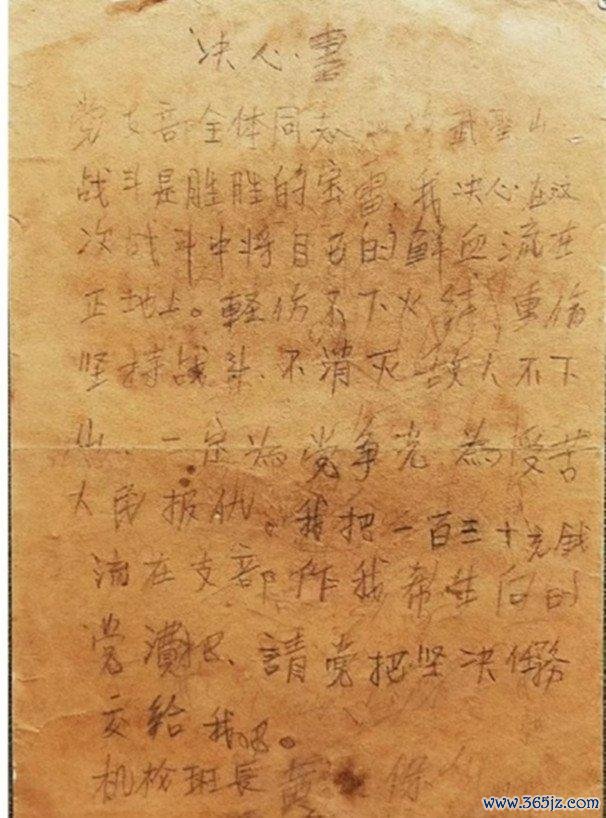 决心書
党支部全体同志 武圣山
战斗是胜胜的宝雷,我决心在这
次战斗中将自己的鲜血流在
正地上。軽伤不下火线,重伤
坚持战斗、不消灭敌人不下
山、一定為党争光為受苦
人民报仇。我把一百三十元錢
流在支部作我希生后的
党潰把、請党把坚决任務
交給我吧。
机枪班長 黄 保
www.365jz.com